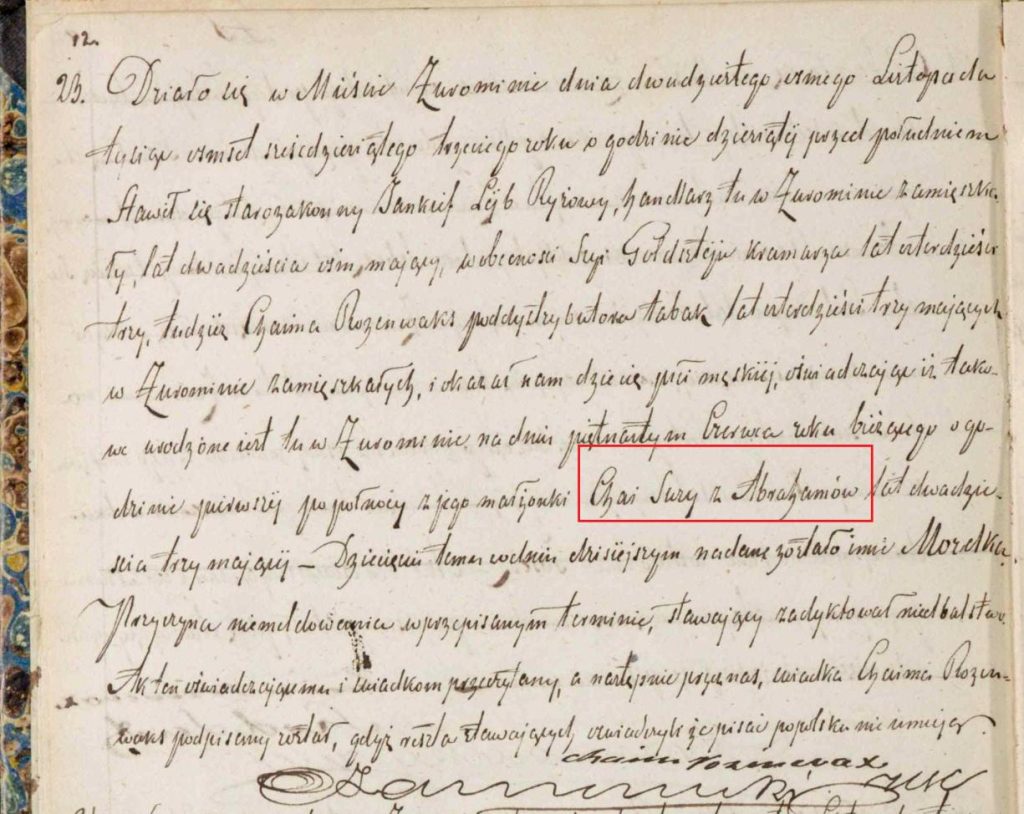 12.
23. Działo się w Mieście Zurominie dnia dwudziestego osmego Listopada
tysiąc osmset sześcdziesiątego trzeciego roku o godzinie dziesiątej przed południem
Stawił się starozakonny Jankief Lejb Ryżowy, handlarz tu w Zurominie zamięszka-
ły, lat dwadzieścia ośm mający, w obecnosci Szyi Goldsztejn kramarza lat czterdzieści
trzy, tudzież Chaima Rozenwaks poddystrybutora tabak lat czterdzieści trzy mających
w Zurominie zamięszkałych, i okazał nam dziecię płci męskiij, oświadczając iż tako-
we urodzone iest tu w Zurominie na dniu piętnastym Czerwca roku bieżącego o go-
dzinie pierwszej po połnocy z jego małżonki Chai Sury z Abrahamów lat dwadzie-
scia trzy mającej – Dziecięciu temu w dniu dzisiejszym nadane zostało imie Mordka.
Przyczyna niemeldowania w przepisanym terminie, stawający zadyktował niedbalstwo.
Akt ten oświadczającemu i swiadkom przeczytany, a następnie przez nas, swiadka Chaima Rozen-
waks podpisany został, gdyż reszta stawających oświadczyli że pisać popolsku nie umieją.
chaim rozenwax